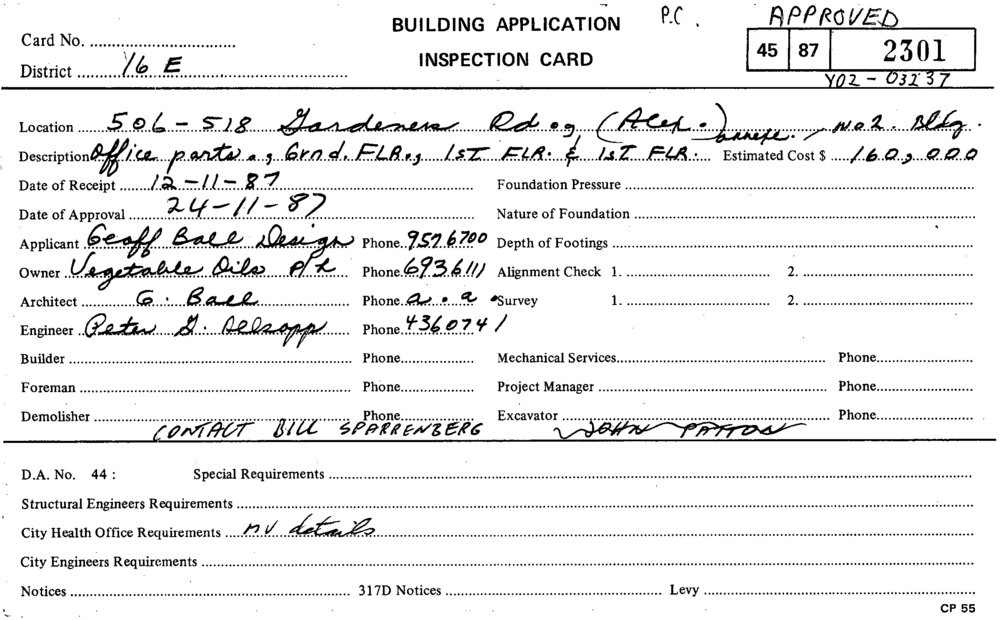 BUILDING APPLICATION P.C. APPROVED
Card No. 45 87 2301
INSPECTION CARD
District 16 E Y02 - 03237
Location 506-518 Gardeners Rd., (Alex.) annexe. / No 2. Bldg.
Description Office parts., Grnd. FLR., 1ST FLR. & 1ST FLR. Estimated Cost $ 160,000
Date of Receipt 12-11-87 Foundation Pressure
Date of Approval 24-11-87 Nature of Foundation
Applicant Geoff Ball Design Phone 9576700 Depth of Footings
Owner Vegetable Oils P/L Phone 6936111 Alignment Check 1. 2.
Architect G. Ball Phone a.a. Survey 1. 2.
Engineer Peter G. Allsopp Phone 4360741
Builder Phone Mechanical Services Phone
Foreman Phone Project Manager Phone
Demolisher Phone Excavator Phone
CONTACT BILL SPARRENBERG JOHN PATTON
D.A. No. 44 : Special Requirements
Structural Engineers Requirements
City Health Office Requirements MV details
City Engineers Requirements
Notices 317D Notices Levy
CP 55